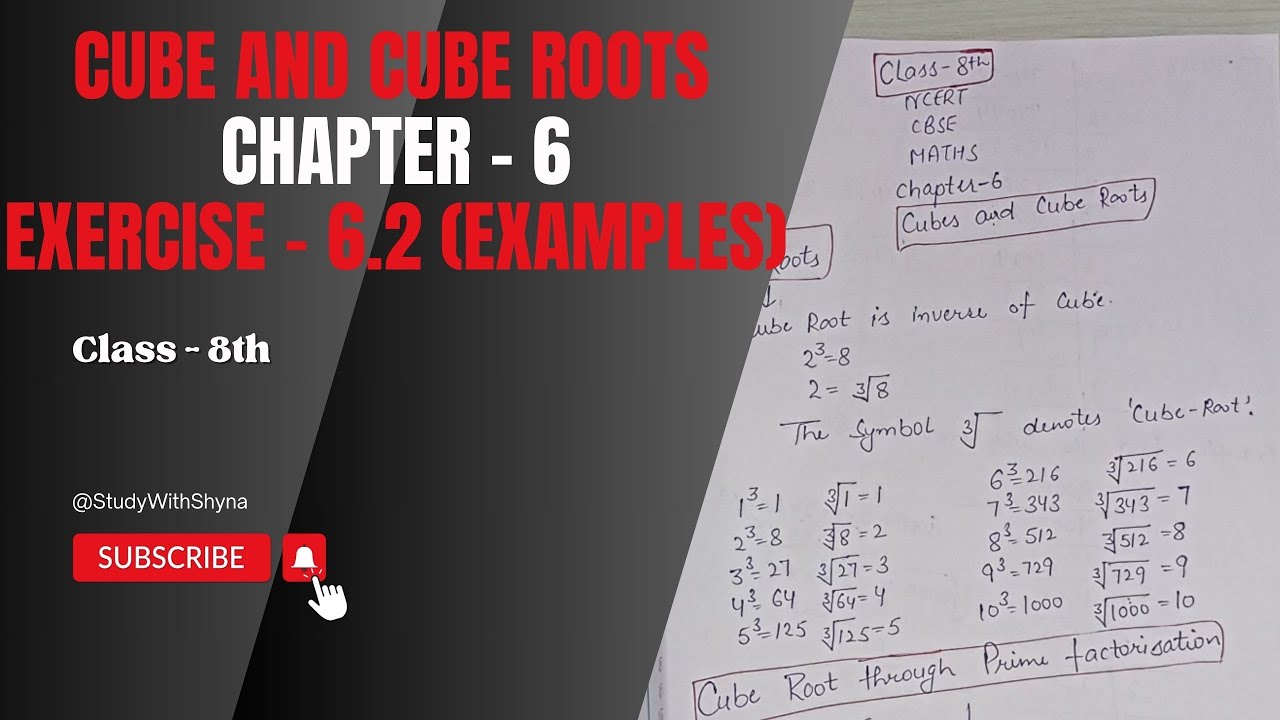 CUBE AND CUBE ROOTS
CHAPTER - 6
EXERCISE - 6.2 (EXAMPLES)
Class - 8th
@StudyWithShyna
SUBSCRIBE
Class-8th
NCERT
CBSE
MATHS
Chapter-6
Cubes and Cube Roots
Root is inverse of Cube.
2³=8
2=∛8
The Symbol ∛ denotes 'Cube-Root'.
1³=1 ∛1=1
2³=8 ∛8=2
3³=27 ∛27=3
4³=64 ∛64=4
5³=125 ∛125=5
6³=216 ∛216=6
7³=343 ∛343=7
8³=512 ∛512=8
9³=729 ∛729=9
10³=1000 ∛1000=10
Cube Root through Prime factorisation